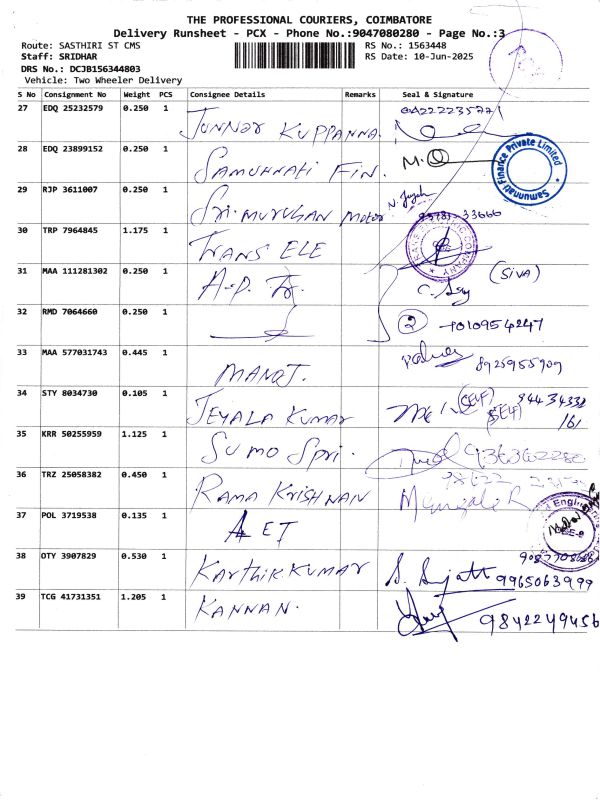 THE PROFESSIONAL COURIERS, COIMBATORE
Delivery Runsheet - PCX - Phone No.:9047080280 - Page No.:3
Route: SASTHIRI ST CMS RS No.: 1563448
Staff: SRIDHAR RS Date: 10-Jun-2025
DRS No.: DCJB156344803
Vehicle: Two Wheeler Delivery
S No Consignment No Weight PCS Consignee Details Remarks Seal & Signature
27 EDQ 25232579 0.250 1 JUNNAR KUPPANNA
28 EDQ 23899152 0.250 1 SAMUNNATI FIN. M.
Samunnati Finance Private Limited
29 RJP 3611007 0.250 1 SRI MURUGAN Motor 33666
30 TRP 7964845 1.175 1 TRANS ELE
31 MAA 111281302 0.250 1 A.P. (SIVA)
32 RMD 7064660 0.250 1 2
33 MAA 577031743 0.445 1 MANOJ. 8925955909
34 STY 8034730 0.105 1 JEYALA KUMAR (SELF) SELF 94434338
161
35 KRR 50255959 1.125 1 SUMO Spri. 936362280
36 TRZ 25058382 0.450 1 RAMA KRISHNAN
37 POL 3719538 0.135 1 AEI
38 OTY 3907829 0.530 1 KARTHIK KUMAR S. Sujatt 9965063999
39 TCG 41731351 1.205 1 KANNAN. 9842249456